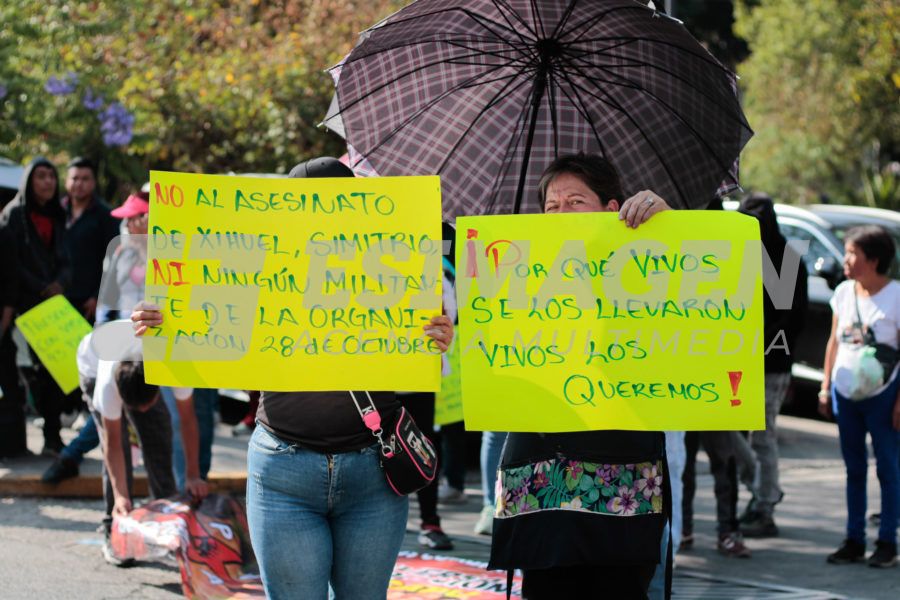 NO AL ASESINATO
DE XIHUEL, SIMITRIO,
NI NINGÚN MILITAN-
TE DE LA ORGANI-
ZACIÓN 28 de OCTUBRE
¡POR QUÉ VIVOS
SE LOS LLEVARON
VIVOS LOS
QUEREMOS!
ESIMAGEN
AGENCIA MULTIMEDIA